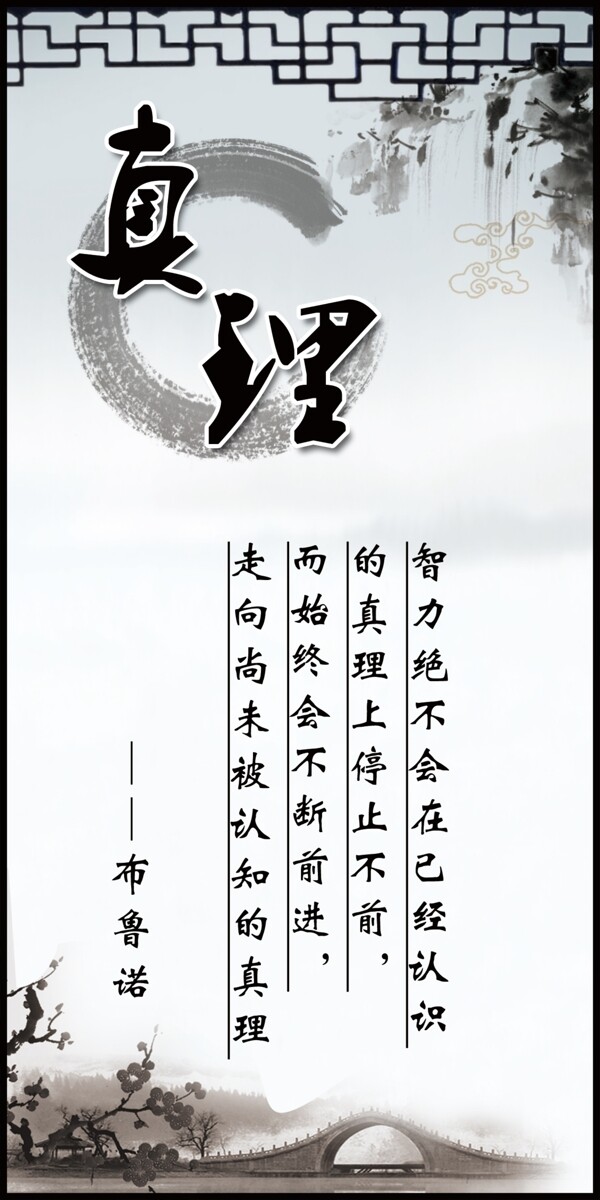 真理
智力绝不会在已经认识
的真理上停止不前，
而始终会不断前进，
走向尚未被认知的真理
——布鲁诺